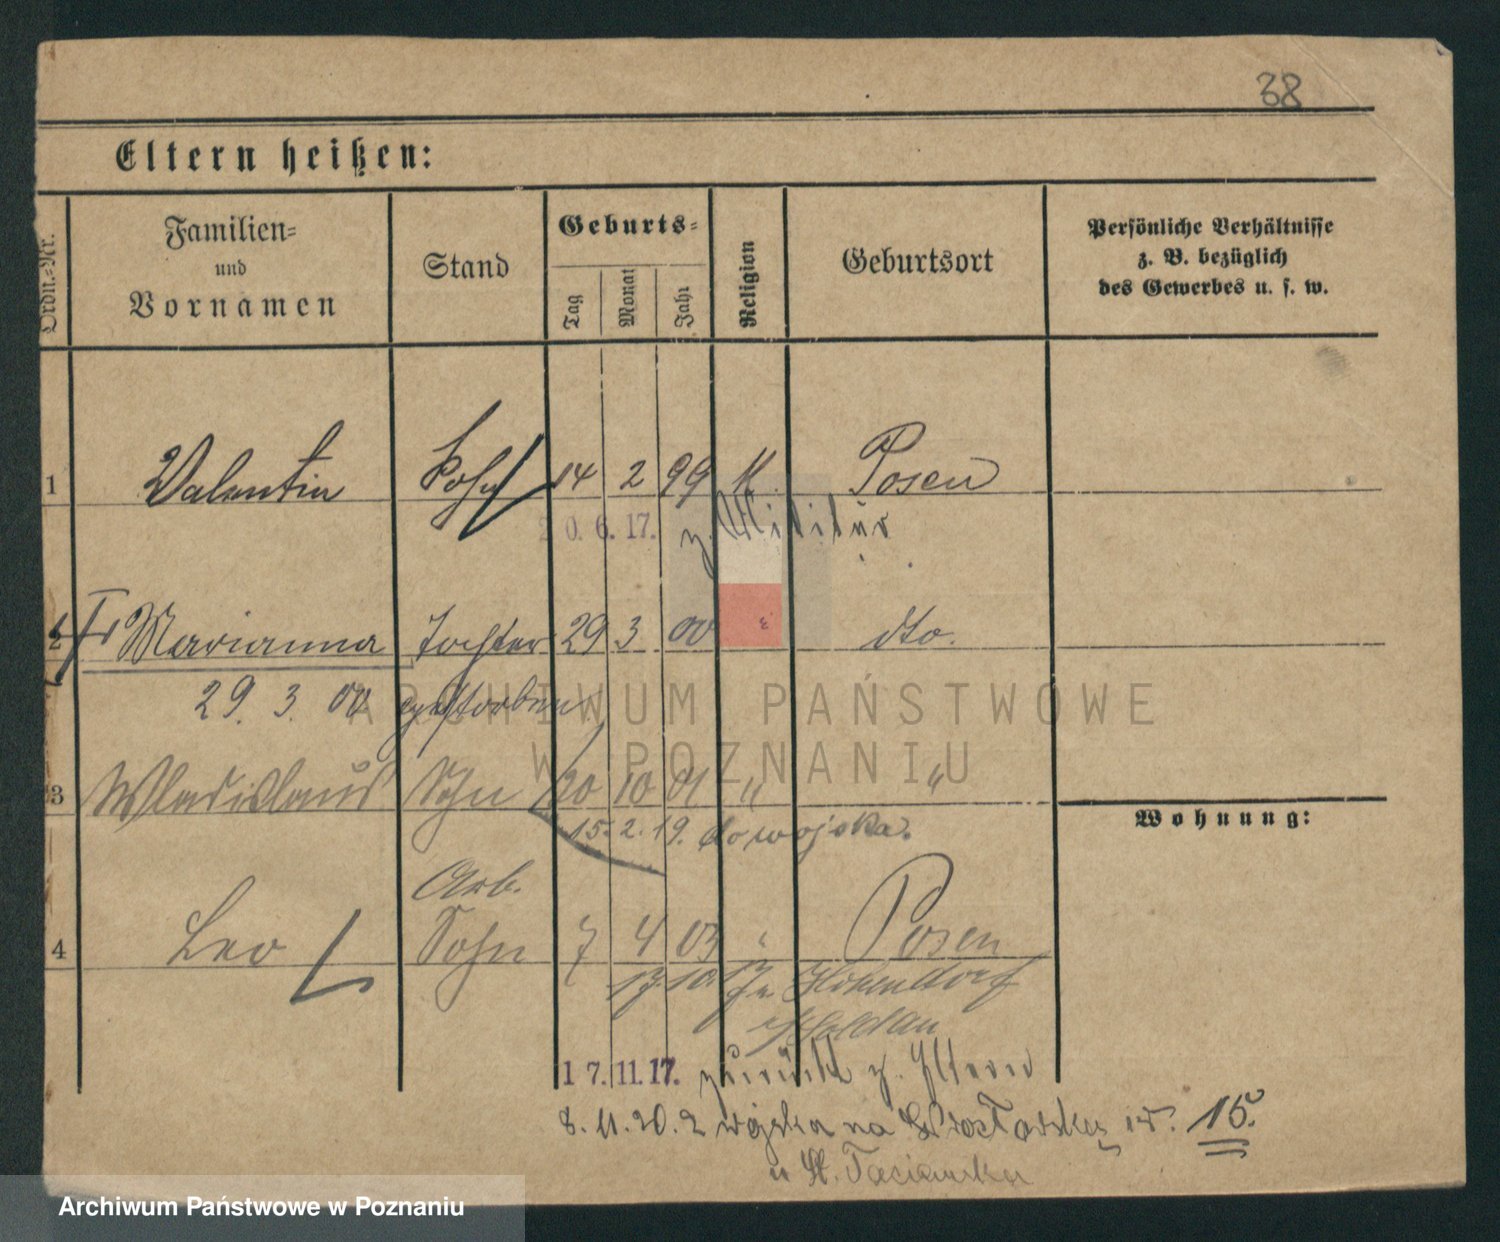 38
Eltern heißen:
Ordn.-Nr.
Familien-
und
Vornamen
Stand
Geburts-
Tag
Monat
Jahr
Religion
Geburtsort
Persönliche Verhältnisse
z. B. bezüglich
des Gewerbes u. s. w.
1 Valentin Sohn 14 2 99 K. Posen
20.6.17. z. Militär
2 Marianna Tochter 29 3 00 " dto.
29. 3. 00 gestorben
3 Wladislaus Sohn 20 10 01 " "
15. 2. 19. do wojska.
Wohnung:
Arb.
4 Leo Sohn 7 4 03 " Posen
17.10.17 n. Hohendorf
17.11.17. zurück z. Eltern
8. 11. 20. z wojska na 15.
u St.
ARCHIWUM PAŃSTWOWE
W POZNANIU
Archiwum Państwowe w Poznaniu